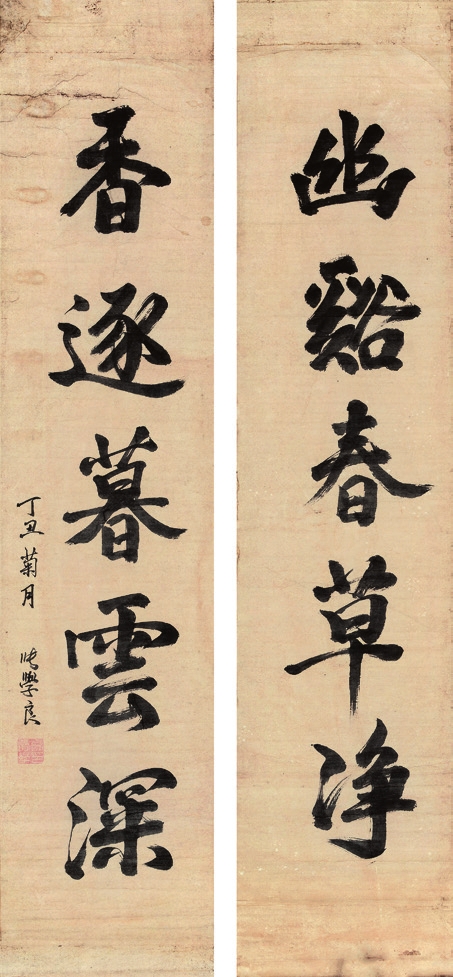 幽谿春草净
香逐暮雲深
丁丑菊月
張學良